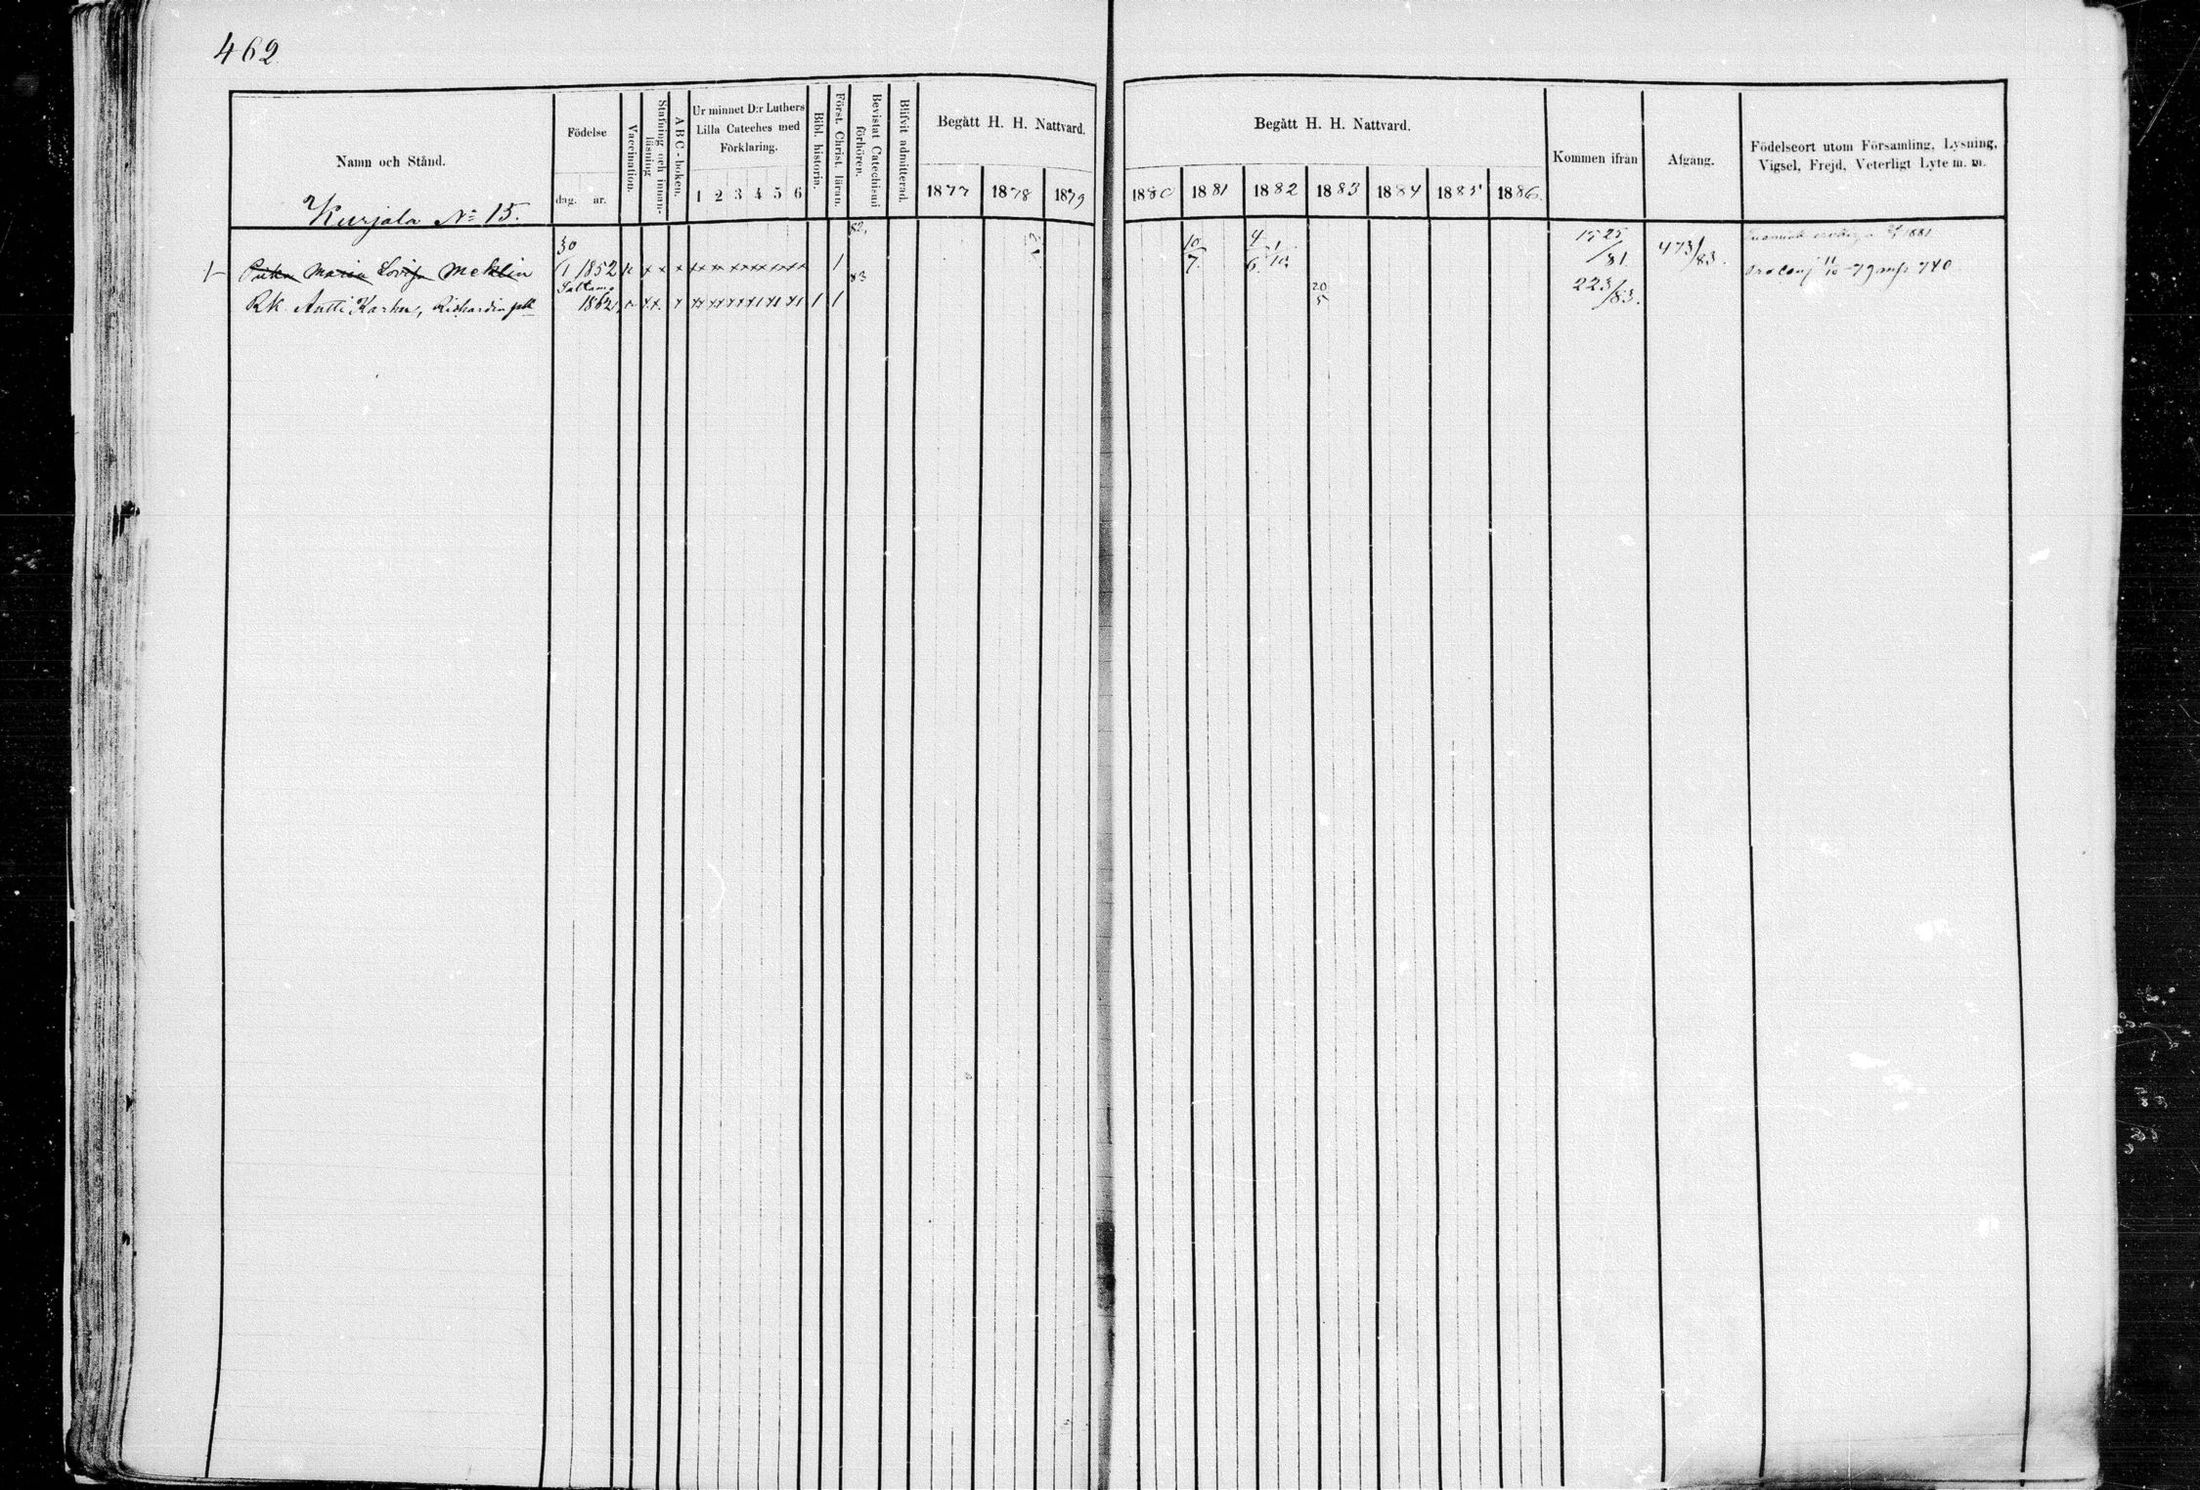 462
Namn och Stånd.
Födelse
dag. år.
Vaccination.
Stafning och innan-läsning
A B C - boken.
Ur minnet D:r Luthers
Lilla Cateches med
Förklaring.
1 2 3 4 5 6
Bibl. historia.
Först. Christ. läran.
Bevistat Catechismi förhören.
Blifvit admitterad.
Begått H. H. Nattvard.
1877 1878 1879
Begått H. H. Nattvard.
1880 1881 1882 1883 1884 1885 1886.
Kommen ifrån
Afgang.
Födelseort utom Församling, Lysning,
Vigsel, Frejd, Veterligt Lyte m. m.
Kurjala No 15.
Maria Lovisa Meklin 30/1 1852 x x x x 1 82, 83 10/7 4/6 1/10 1525/81 473/83.
Rk. Antti Karhu, 1862 x x x x 1 1 20/5 223/83.